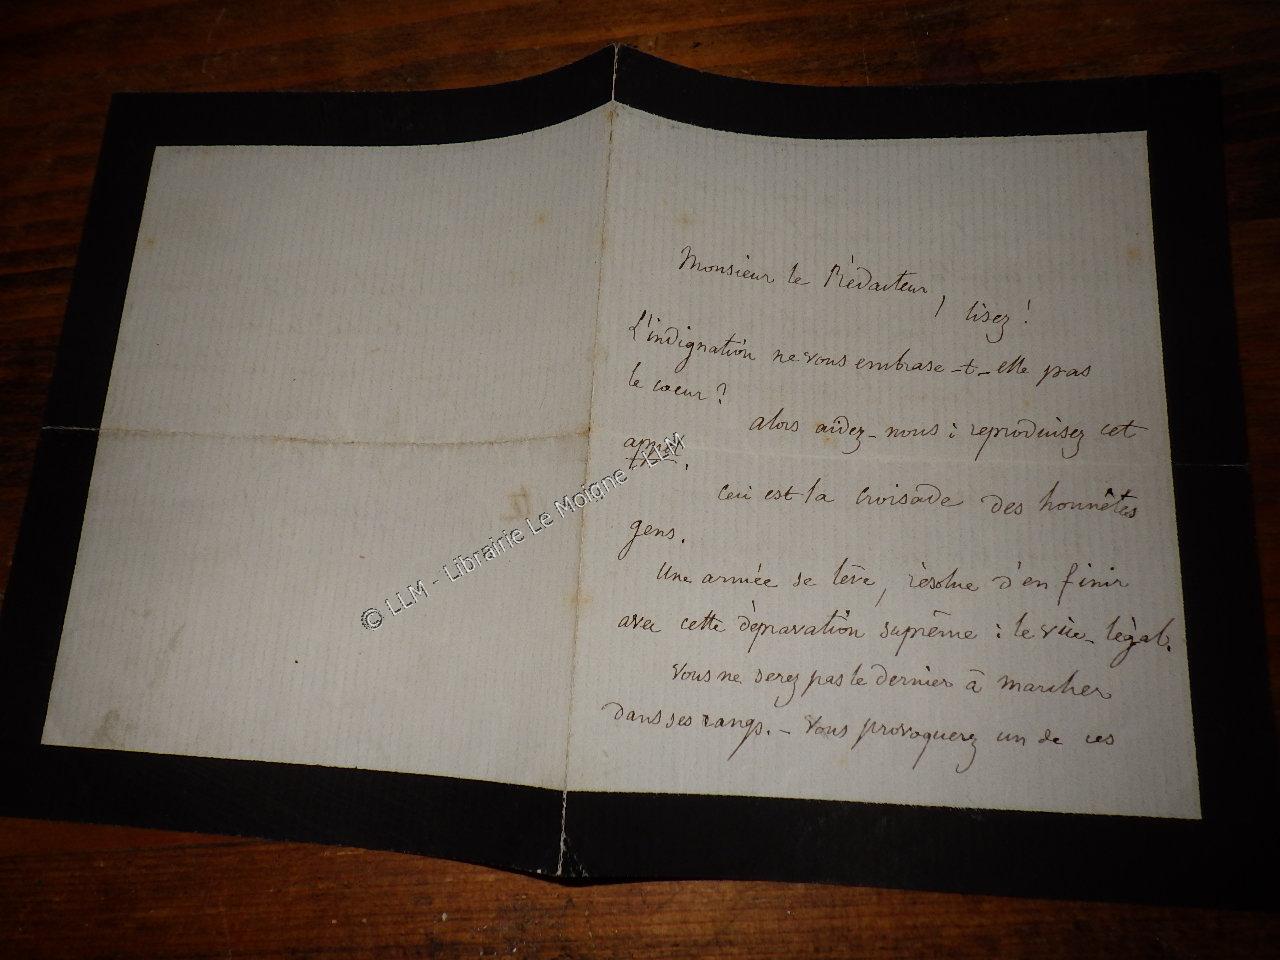 Monsieur le Rédacteur, lisez!
L'indignation ne vous embrase-t-elle pas
le coeur?
alors aidez-nous: reproduisez cet
appel.
ceci est la croisade des honnêtes
gens.
Une armée se lève, résolue d'en finir
avec cette dépravation suprême: le vice-légal.
Vous ne serez pas le dernier à marcher
dans ses rangs. - Vous provoquerez un de ces
© LLM - Librairie Le Moigne - LLM